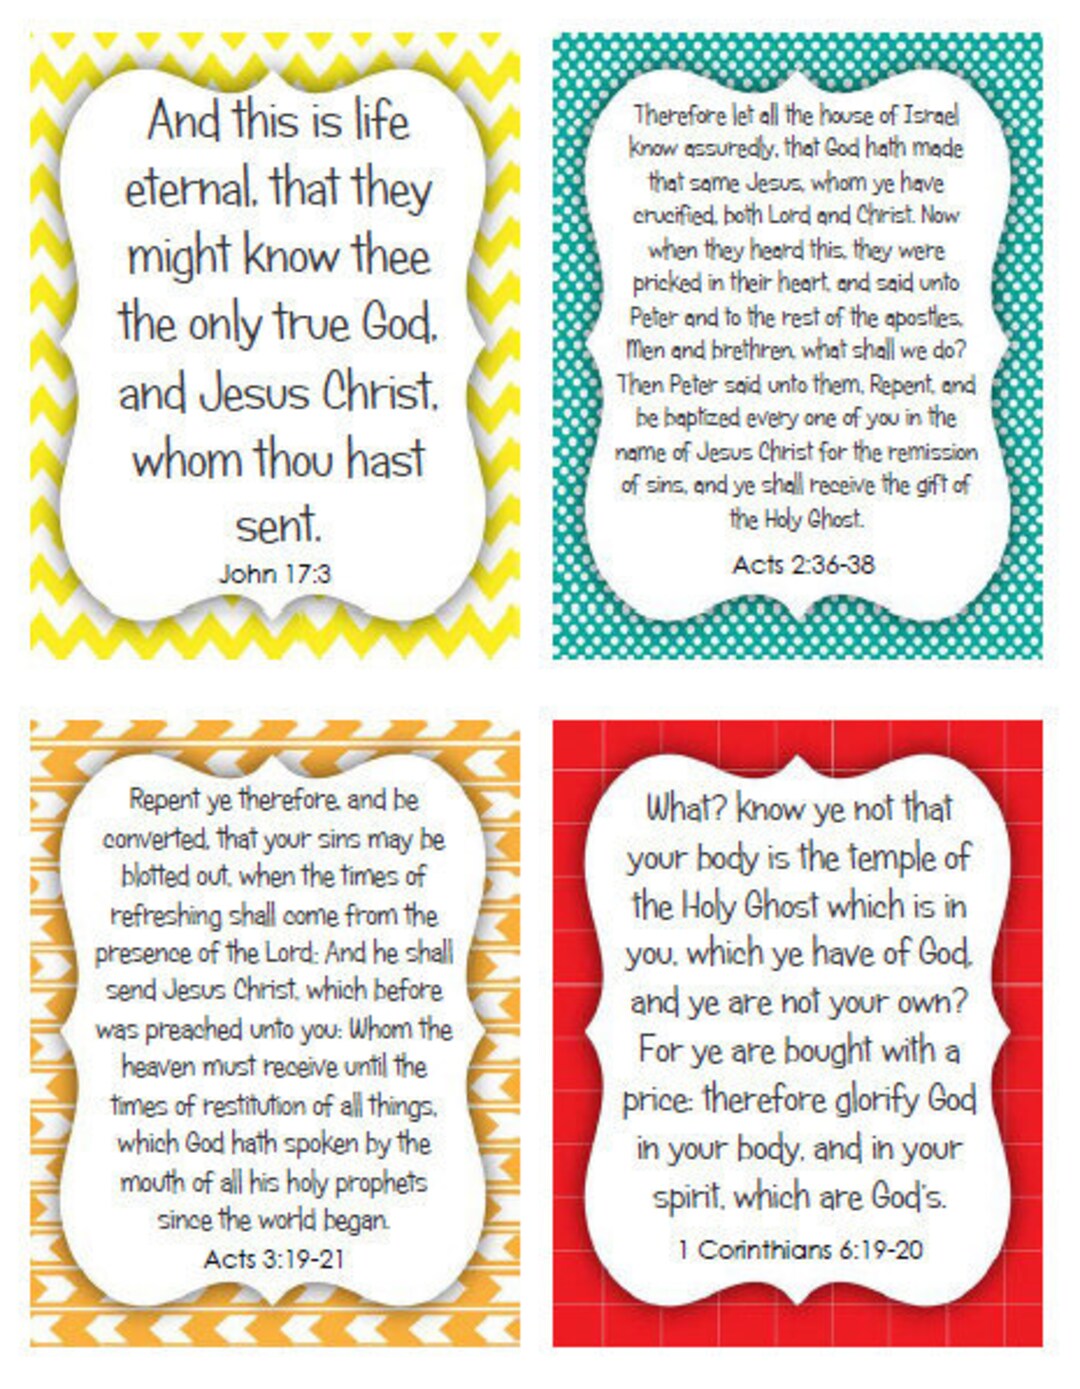 And this is life
eternal, that they
might know thee
the only true God,
and Jesus Christ,
whom thou hast
sent.
John 17:3
Therefore let all the house of Israel
know assuredly, that God hath made
that same Jesus, whom ye have
crucified, both Lord and Christ. Now
when they heard this, they were
pricked in their heart, and said unto
Peter and to the rest of the apostles,
Men and brethren, what shall we do?
Then Peter said unto them, Repent, and
be baptized every one of you in the
name of Jesus Christ for the remission
of sins, and ye shall receive the gift of
the Holy Ghost.
Acts 2:36-38
Repent ye therefore, and be
converted, that your sins may be
blotted out, when the times of
refreshing shall come from the
presence of the Lord; And he shall
send Jesus Christ, which before
was preached unto you: Whom the
heaven must receive until the
times of restitution of all things,
which God hath spoken by the
mouth of all his holy prophets
since the world began.
Acts 3:19-21
What? know ye not that
your body is the temple of
the Holy Ghost which is in
you, which ye have of God,
and ye are not your own?
For ye are bought with a
price: therefore glorify God
in your body, and in your
spirit, which are God's.
1 Corinthians 6:19-20